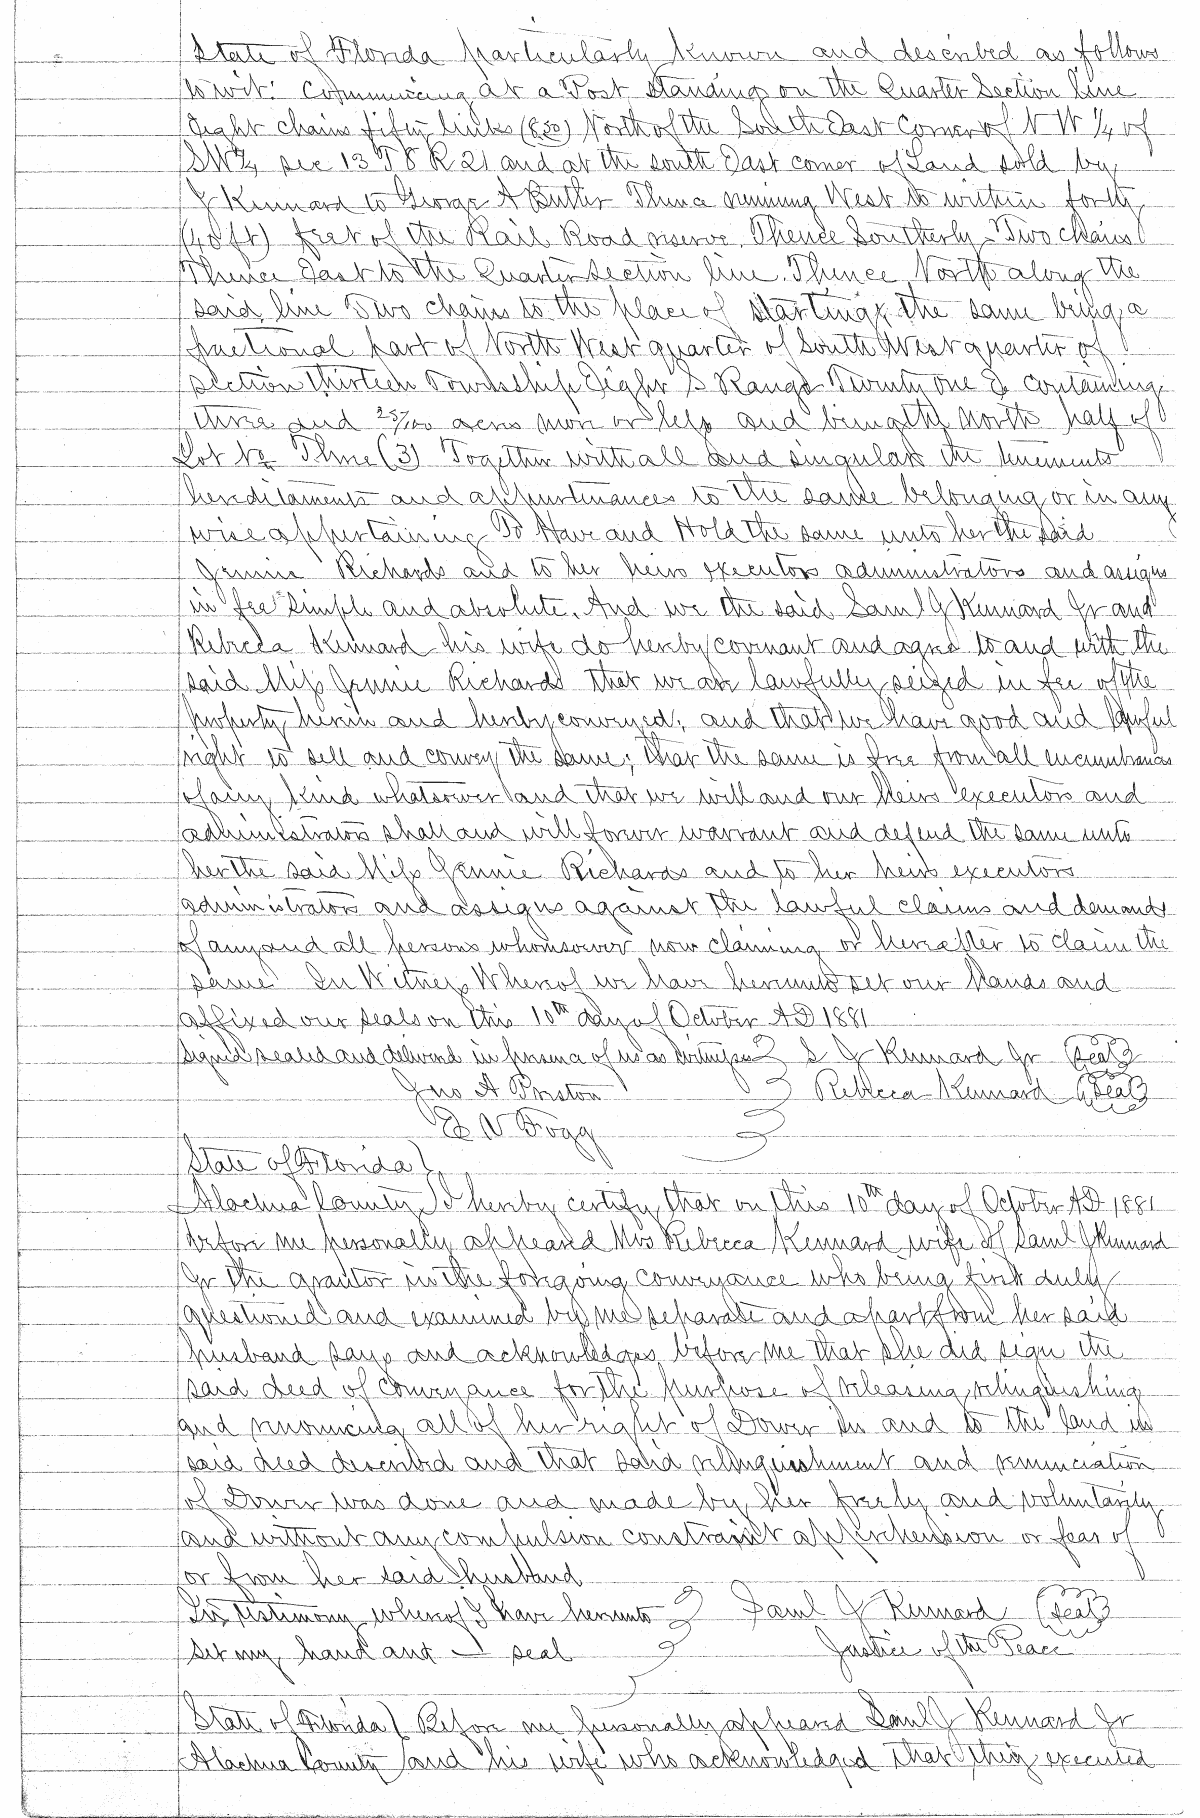 State of Florida particularly known and described as follows
to wit: Commencing at a Post standing on the Quarter Section line
Eight chains fifty links (8.50) North of the South East Corner of N W 1/4 of
SW 1/4 sec 13 T 8 R 21 and at the south East corner of Land sold by
J Kennard to George A Butler Thence running West to within forty
(40 ft) feet of the Rail Road reserve. Thence Southerly Two chains
Thence East to the Quarter Section line. Thence North along the
said line Two chains to the place of starting, the same being a
fractional part of North West quarter of South West quarter of
section thirteen Township Eight S Range Twenty one E containing
three and 25/100 acres more or less and being the North half of
Lot No Three (3) Together with all and singular the tenements
hereditaments and appurtenances to the same belonging or in any
wise appertaining To Have and Hold the same unto her the said
Jennie Richards and to her heirs executors administrators and assigns
in fee simple and absolute. And we the said Saml J Kennard Jr and
Rebecca Kennard his wife do hereby covenant and agree to and with the
said Miss Jennie Richards that we are lawfully seized in fee of the
property herein and hereby conveyed; and that we have good and lawful
right to sell and convey the same; that the same is free from all incumbrances
of any kind whatsoever and that we will and our heirs executors and
administrators shall and will forever warrant and defend the same unto
her the said Miss Jennie Richards and to her heirs executors
administrators and assigns against the lawful claims and demands
of any and all persons whomsoever now claiming or hereafter to claim the
same In Witness Whereof we have hereunto set our hands and
affixed our seals on this 10th day of October AD 1881
Signed sealed and delivered in presence of us as witnesses S J Kennard Jr (Seal)
Jno A Preston Rebecca Kennard (Seal)
E N Fogg
State of Florida
Alachua County I hereby certify that on this 10th day of October AD 1881
before me personally appeared Mrs Rebecca Kennard wife of Saml J Kennard
Jr the grantor in the foregoing conveyance who being first duly
questioned and examined by me separate and apart from her said
husband says and acknowledges before me that she did sign the
said deed of conveyance for the purpose of releasing relinquishing
and renouncing all of her right of Dower in and to the land in
said deed described and that said relinquishment and renunciation
of Dower was done and made by her freely and voluntarily
and without any compulsion constraint apprehension or fear of
or from her said husband
In testimony whereof I have hereunto Saml J Kennard (Seal)
set my hand and seal Justice of the Peace
State of Florida Before me personally appeared Saml J Kennard Jr
Alachua County and his wife who acknowledged that they executed